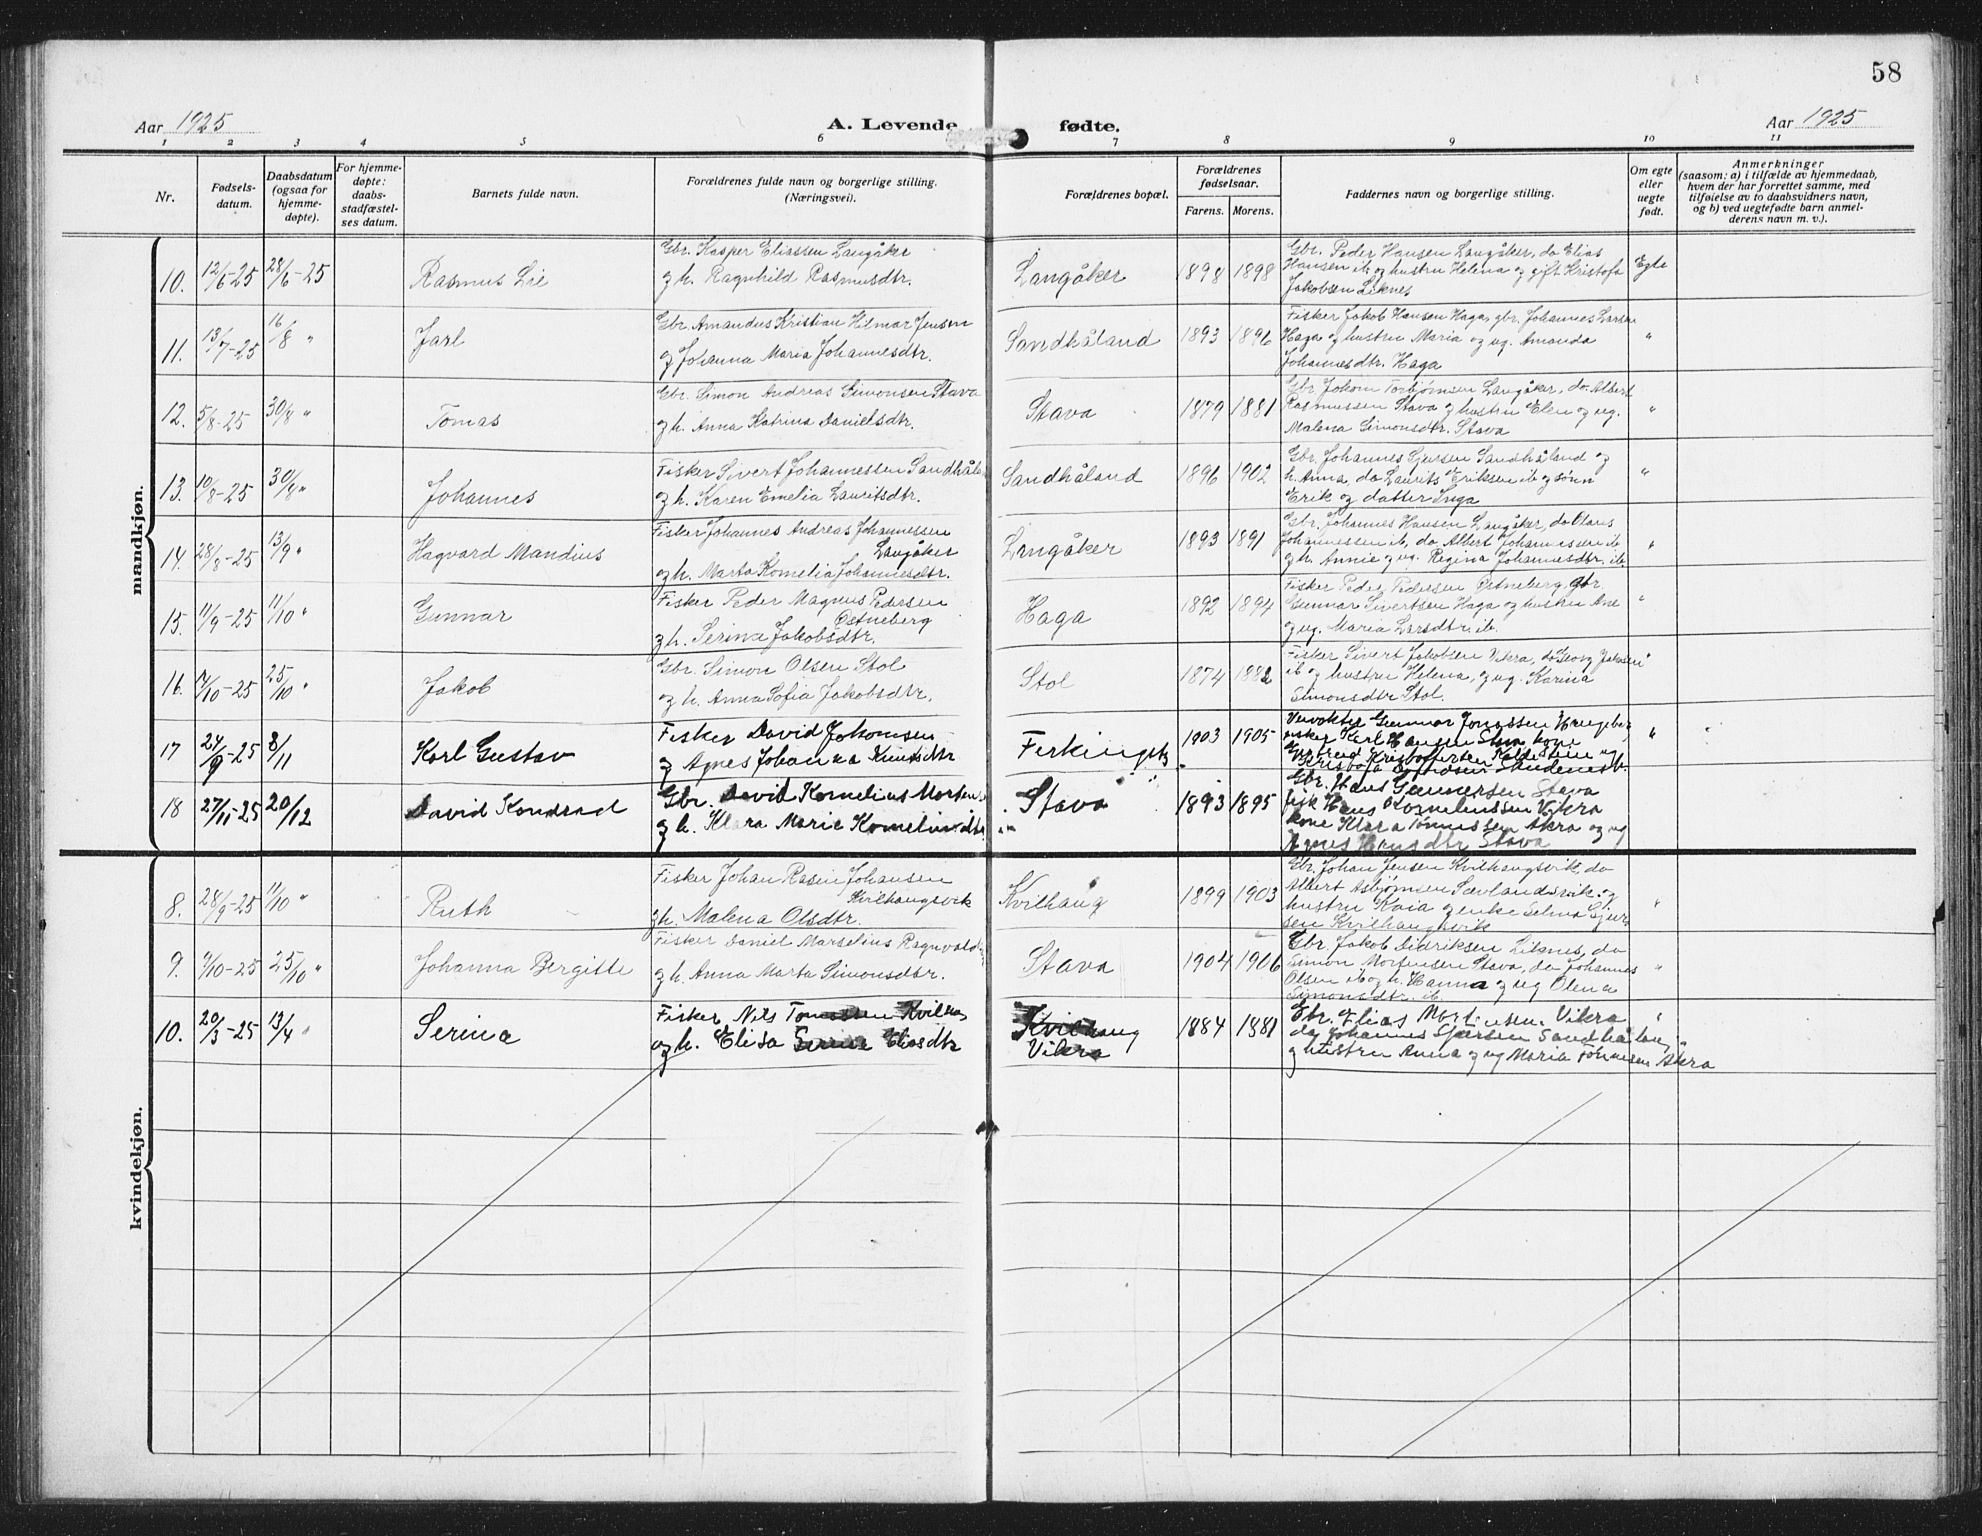 58
Aar 1925
A. Levende fødte.
Aar 1925
1 2 3 4 5 6 7 8 9 10 11
Nr.
Fødsels-
datum.
Daabsdatum
(ogsaa for
hjemme-
døpte).
For hjemme-
døpte:
daabs-
stadfæstel-
ses datum.
Barnets fulde navn.
Forældrenes fulde navn og borgerlige stilling.
(Næringsvei).
Forældrenes bopæl.
Forældrenes
fødselsaar.
Farens. Morens.
Faddernes navn og borgerlige stilling.
Om egte
eller
uegte
født.
Anmerkninger
(saasom: a) i tilfælde av hjemmedaab,
hvem der har forrettet samme, med
tilføielse av to daabsvidners navn,
og b) ved uegtefødte barn anmel-
derens navn m. v.).
mandkjøn.
10. 12/6-25 28/6-25 Rasmus Lie
Gbr. Kasper Eliassen Langåker
og h. Ragnhild Rasmusdtr.
Langåker 1898 1898
Gbr. Peder Hansen Langåker, do Elias
Hansen ib. og hustru Helena og gift Kristofa
Jakobsen Liknes
Egte
11. 13/7-25 16/8 " Jarl
Gbr. Amandus Kristian Hilmar Jensen
og Johanna Maria Johannesdtr.
Sandhåland 1893 1896
Fisker Jakob Hansen Haga, gbr. Johannes Larsen
Haga og hustru Maria og ug. Amanda
Johannesdtr. Haga
"
12. 5/8-25 30/8 " Tomas
Gbr. Simon Andreas Simonsen Stava
og h. Anna Katrina Danielsdtr.
Stava 1879 1881
Gbr Jokom Torbjørnsen Langåker, do. Albert
Rasmussen Stava og hustru Elen og ug.
Malena Simonsdtr. Stava
"
13. 10/8-25 30/8 " Johannes
Fisker Sivert Johannessen Sandhåland
og h. Karen Emelia Lauritsdtr.
Sandhåland 1896 1902
Gbr. Johannes Gjersen Sandhåland og
h. Anna, do Laurits Eriksen ib og sønn
Erik og datter Inga
"
14. 28/8-25 13/9 " Hagvard Mandius
Fisker Johannes Andreas Johannessen
Langåker
og h. Marta Kornelia Johannesdtr.
Langåker 1893 1891
Gbr. Johannes Hansen Langåker, do Olaus
Johannessen ib, do Albert Johannessen ib
og h. Annie og ug. Regina Johannesdtr. ib.
"
15. 11/9-25 11/10 " Gunnar
Fisker Peder Magnus Pedersen
Østneberg
og h. Serina Jakobsdtr.
Haga 1892 1894
Fisker Peder Pedersen Østneberg, gbr
Gunnar Sivertsen Haga og hustru Ane
og ug. Maria Larsdtr. ib.
"
16. 7/10-25 25/10 " Jakob
Gbr. Simon Olsen Stol
og h. Anna Sofia Jakobsdtr.
Stol 1874 1882
Fisker Sivert Jakobsen Vikra, do Georg Jakobsen
ib og hustru Helena, og ug. Karina
Simonsdtr Stol.
"
17 24/9-25 8/11 Karl Gustav
Fisker David Jokomsen
og Agnes Johanna Knutsdtr
Ferkingstad 1903 1905
Gunnar Jonassen
Karl Hansen kone
"
18 27/11-25 20/12 David Kondrad
Gbr. David Kornelius Morten
og h. Klara Marie Korneliusdtr
Stava 1893 1895
Gbr. Hans Gunnersen Stava
fisk Hans Korneliussen Vikra
kone Klara Tønnessen Akra og ug
Agnes Hansdtr Stava
kvindekjøn.
8. 28/9-25 11/10 " Ruth
Fisker Johan Rasin Johansen
Kvilhaugsvik
og h. Malena Olsdtr.
Kvilhaug 1899 1903
Gbr. Johan Jensen Kvilhaugsvik, do
Albert Asbjørnsen Sævlandsvik og
hustru Kaia og enke Selma Gjer-
sen Kvilhaugsvik
"
9. 9/10-25 25/10 " Johanna Bergitte
Fisker Daniel Marselius Ragnvalds
og h. Anna Marta Simonsdtr.
Stava 1904 1906
Gbr. Jakob Didriksen Liknes, do
Simon Mortensen Stava, do Johannes
Olsen ib og h. Hanna og ug Olena
Simonsdtr. ib.
"
10. 20/3-25 13/4 " Serina
Fisker Nils Tomassen Kvilhau
og h. Elisa Serine Eliasdtr
Kvilhaug
Vikra
1884 1881
Gbr. Elias Mortensen Vikra
do Johannes Gjersen Sandhåland
og hustru Anna og ug Maria Tønnesen Åkra
"